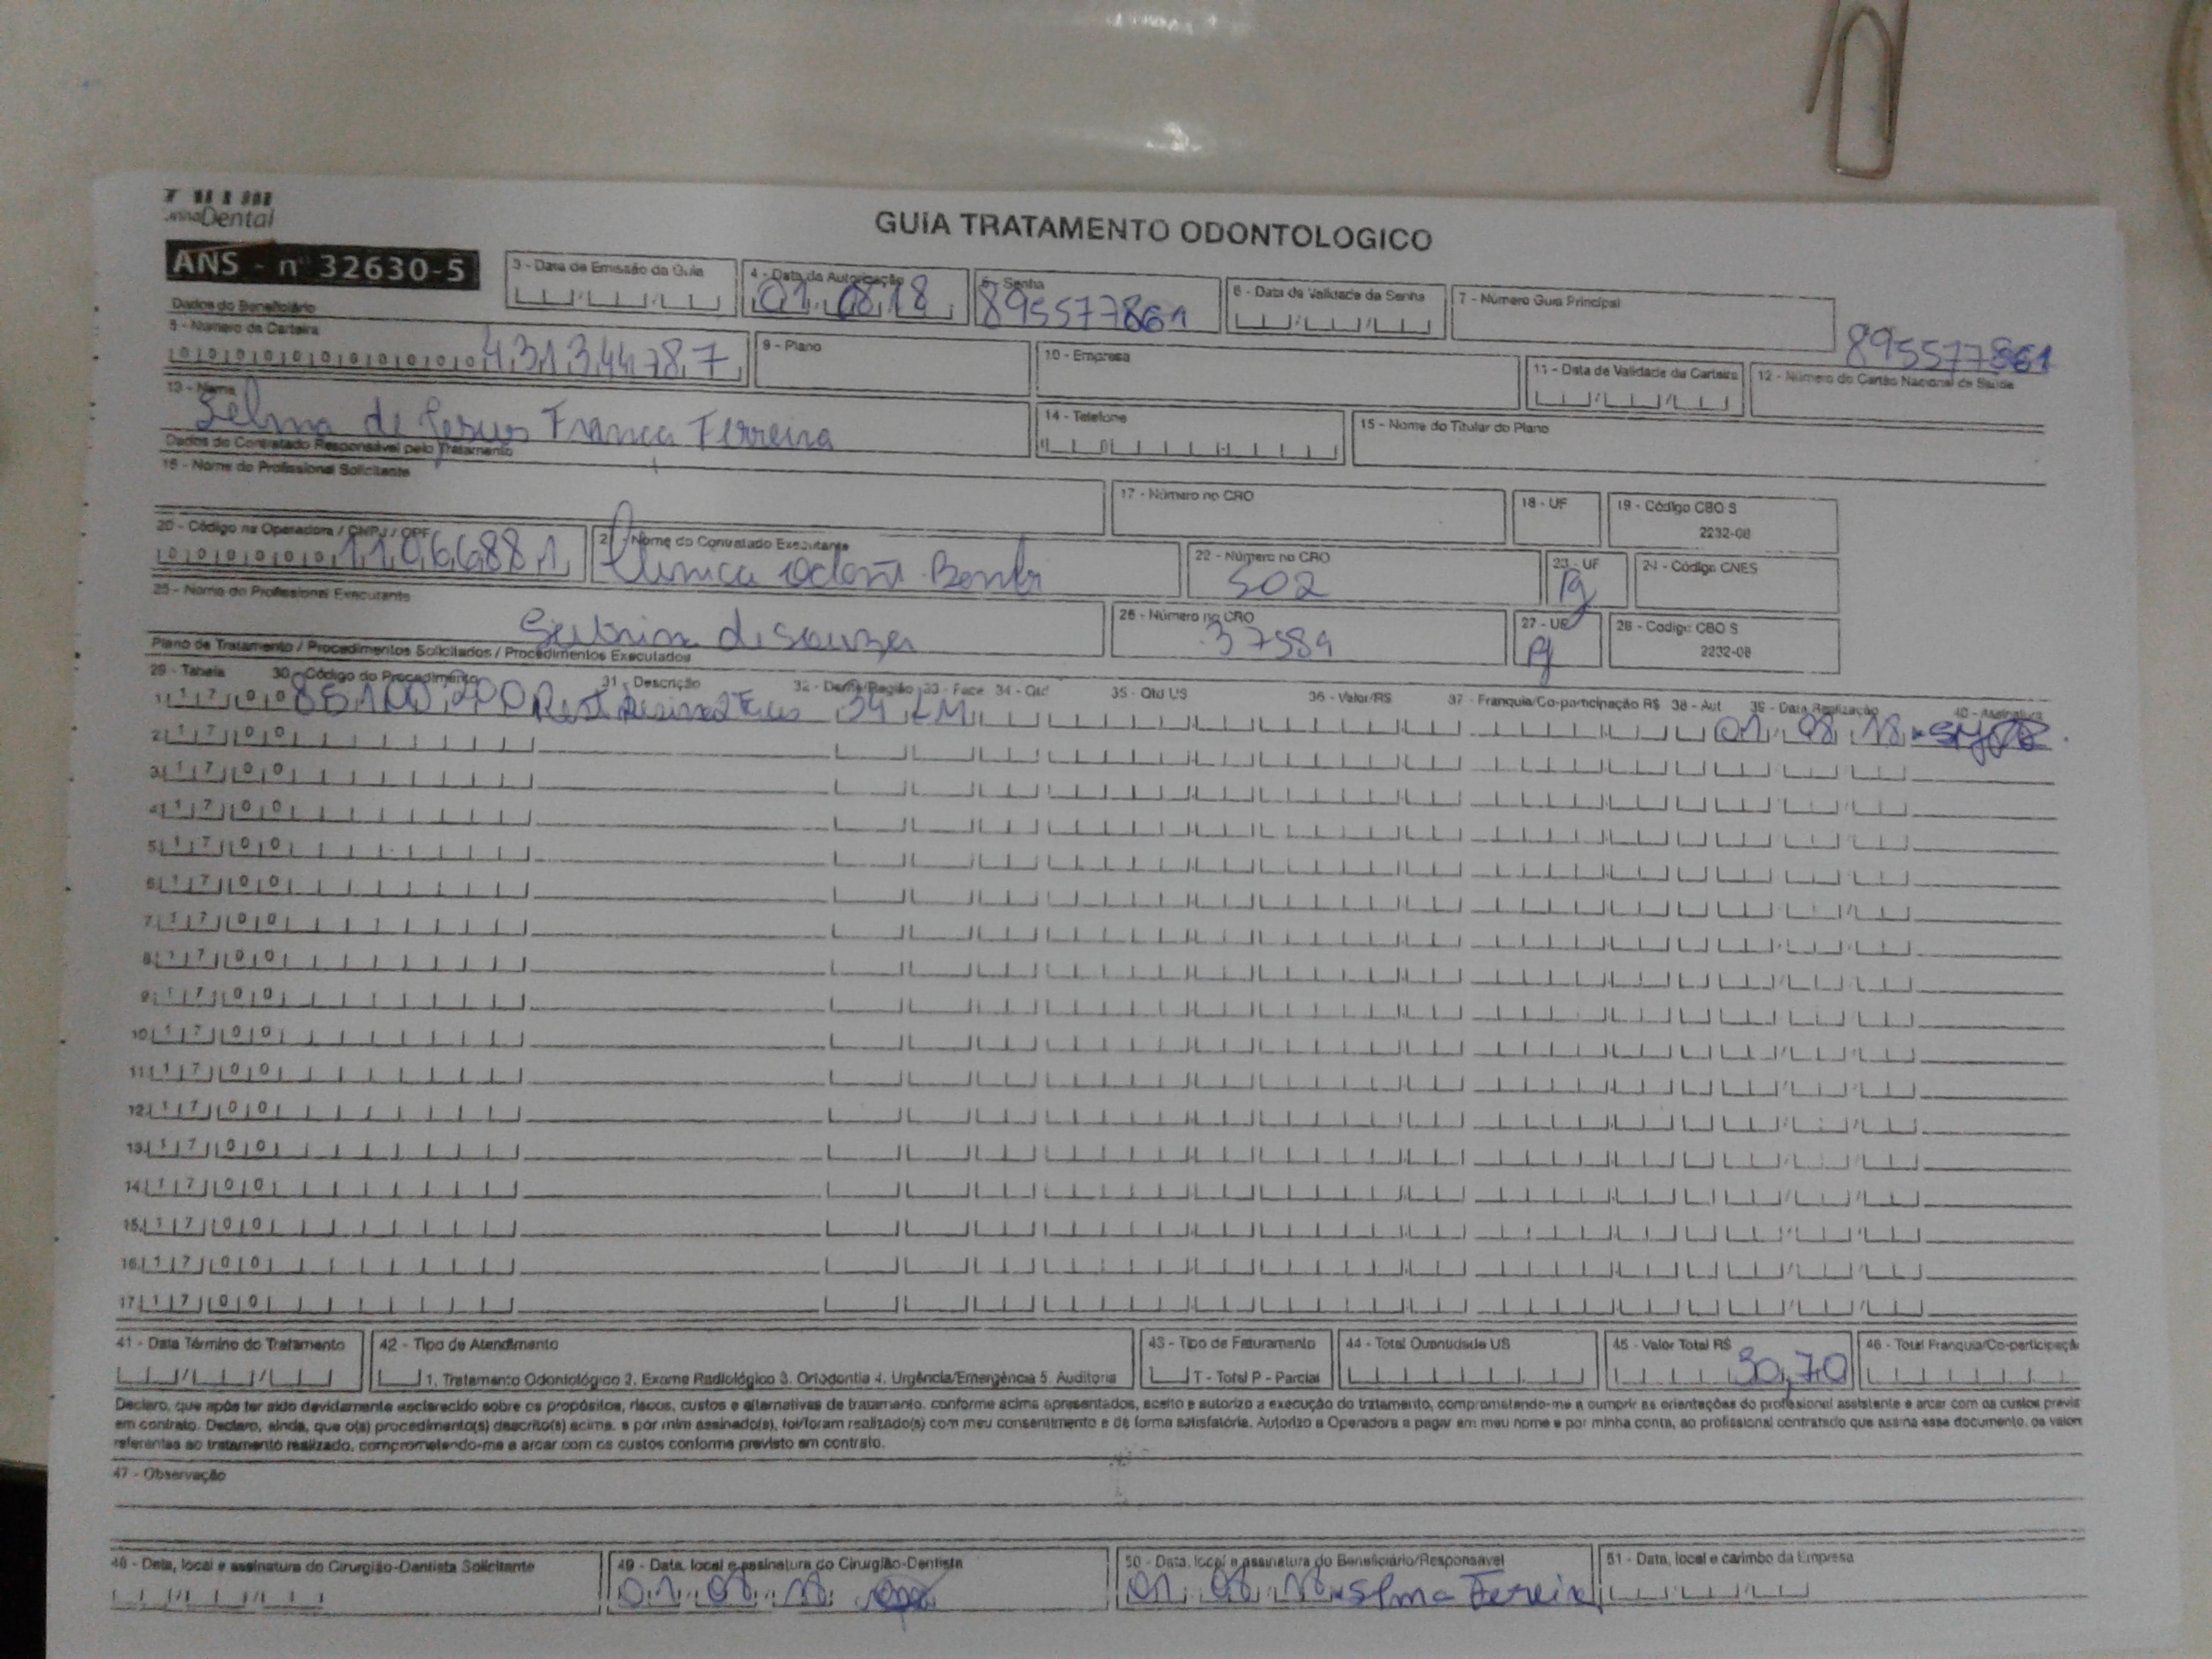 Dental
GUIA TRATAMENTO ODONTOLOGICO
ANS - nº 32630-5
3 - Data de Emissão da Guia
4 - Data da Autorização
01 08 18
5 - Senha
895577861
6 - Data de Validade da Senha
7 - Número Guia Principal
895577861
Dados do Beneficiário
8 - Número da Carteira
0 0 0 0 0 0 0 0 0 0 0 4 3 1 3 4 4 7 8 7
9 - Plano
10 - Empresa
11 - Data de Validade da Carteira
12 - Número do Cartão Nacional de Saúde
13 - Nome
Selma de Jesus Franca Ferreira
14 - Telefone
15 - Nome do Titular do Plano
Dados do Contratado Responsável pelo Tratamento
16 - Nome do Profissional Solicitante
17 - Número no CRO
18 - UF
19 - Código CBO S
2232-08
20 - Código na Operadora / CNPJ / CPF
0 0 0 0 0 0 1 1 0 6 6 8 8 1
21 - Nome do Contratado Executante
Clinica Odont.
22 - Número no CRO
502
23 - UF
24 - Código CNES
25 - Nome do Profissional Executante
de Souza
26 - Número no CRO
37584
27 - UF
28 - Codigo CBO S
2232-08
Plano de Tratamento / Procedimentos Solicitados / Procedimentos Executados
29 - Tabela 30 - Código do Procedimento 31 - Descrição 32 - Dente/Região 33 - Face 34 - Qtd 35 - Qtd US 36 - Valor/R$ 37 - Franquia/Co-participação R$ 38 - Aut 39 - Data Realização 40 - Assinatura
1 1 7 0 0 85100200 Rest 34 01 08 18
2 1 7 0 0
3 1 7 0 0
4 1 7 0 0
5 1 7 0 0
6 1 7 0 0
7 1 7 0 0
8 1 7 0 0
9 1 7 0 0
10 1 7 0 0
11 1 7 0 0
12 1 7 0 0
13 1 7 0 0
14 1 7 0 0
15 1 7 0 0
16 1 7 0 0
17 1 7 0 0
41 - Data Término do Tratamento
42 - Tipo de Atendimento
1. Tratamento Odontológico 2. Exame Radiológico 3. Ortodontia 4. Urgência/Emergência 5. Auditoria
43 - Tipo de Faturamento
T - Total P - Parcial
44 - Total Quantidade US
45 - Valor Total R$
30,70
46 - Total Franquia/Co-participaçã
Declaro, que após ter sido devidamente esclarecido sobre os propósitos, riscos, custos e alternativas de tratamento, conforme acima apresentados, aceito e autorizo a execução do tratamento, comprometendo-me a cumprir as orientações do profissional assistente e arcar com os custos previs
em contrato. Declaro, ainda, que o(s) procedimento(s) descrito(s) acima, e por mim assinado(s), foi/foram realizado(s) com meu consentimento e de forma satisfatória. Autorizo a Operadora a pagar em meu nome e por minha conta, ao profissional contratado que assina esse documento, os valore
referentes ao tratamento realizado, comprometendo-me a arcar com os custos conforme previsto em contrato.
47 - Observação
48 - Data, local e assinatura do Cirurgião-Dentista Solicitante
49 - Data, local e assinatura do Cirurgião-Dentista
01 08 18
50 - Data, local e assinatura do Beneficiário/Responsável
01 08 18 Selma Ferreira
51 - Data, local e carimbo da Empresa